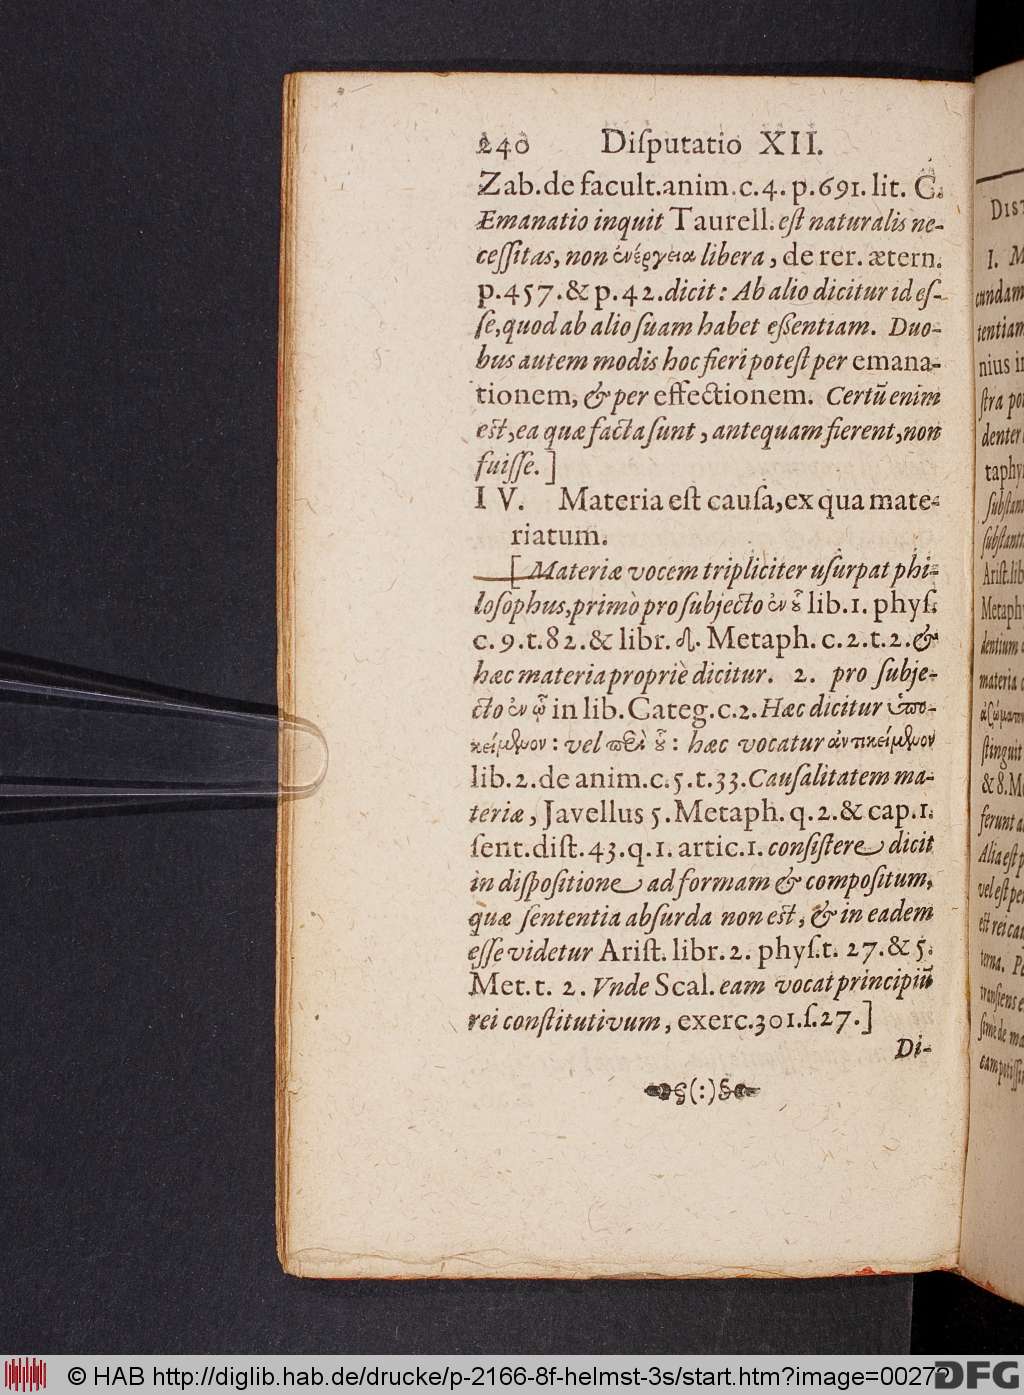 240 Diſputatio XII.
Zab. de facult. anim. c. 4. p. 691. lit. C.
Emanatio inquit Taurell. eſt naturalis ne-
ceſſitas, non ἐνέργεια libera, de rer. ætern.
p. 457. & p. 42. dicit: Ab alio dicitur id eſ-
ſe, quod ab alio ſuam habet eßentiam. Duo-
bus autem modis hoc fieri poteſt per emana-
tionem, & per effectionem. Certū enim
eſt, ea quæ facta ſunt, antequam fierent, non
fuiſſe.]
IV. Materia eſt cauſa, ex qua mate-
riatum.
[Materiæ vocem tripliciter uſurpat phi-
loſophus, primò pro ſubjecto ἐν ᾧ lib. 1. phyſ.
c. 9. t. 82. & libr. Metaph. c. 2. t. 2. &
hæc materia propriè dicitur. 2. pro ſubje-
cto ἐν ᾧ in lib. Categ. c. 2. Hæc dicitur ὑπο-
κείμενον: vel περὶ ὃ: hæc vocatur ἀντικείμενον
lib. 2. de anim. c. 5. t. 33. Cauſalitatem ma-
teriæ, Javellus 5. Metaph. q. 2. & cap. 1.
ſent. diſt. 43. q. 1. artic. 1. conſiſtere dicit
in diſpoſitione ad formam & compoſitum,
quæ ſententia abſurda non eſt, & in eadem
eſſe videtur Ariſt. libr. 2. phyſ. t. 27. & 5.
Met. t. 2. Vnde Scal. eam vocat principiū
rei conſtitutivum, exerc. 301. ſ. 27.]
Di-
Dis
I. M
cundam
tentiam
nius in
ſtra po
denter
taphy
ſubſtan
Ariſt. lib
Metaph
dentium
materia
ſtinguit
& 8. M
ferunt a
Alia eſt p
vel eſt pe
eſt rei cau
terna. P
tranſiens e
© HAB http://diglib.hab.de/drucke/p-2166-8f-helmst-3s/start.htm?image=00272
DFG